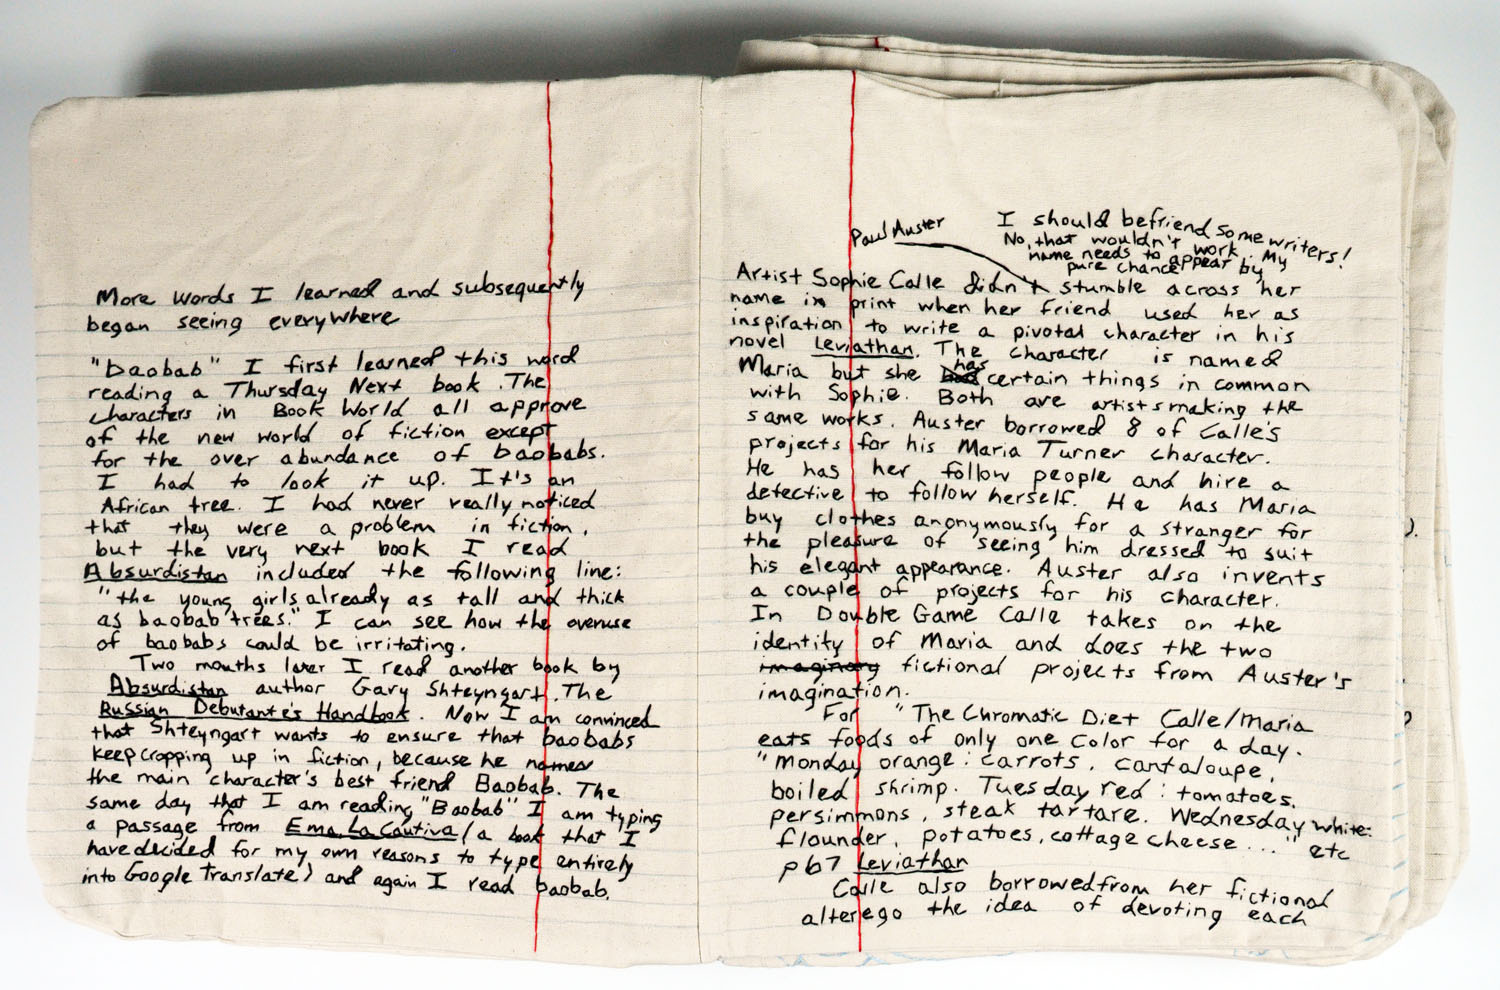 More words I learned and subsequently
began seeing everywhere
"baobab" I first learned this word
reading a Thursday Next book. The
characters in Book World all approve
of the new world of fiction except
for the over abundance of baobabs.
I had to look it up. It's an
African tree. I had never really noticed
that they were a problem in fiction,
but the very next book I read
Absurdistan included the following line:
"the young girls already as tall and thick
as baobab trees." I can see how the overuse
of baobabs could be irritating.
Two months later I read another book by
Absurdistan author Gary Shteyngart. The
Russian Debutante's Handbook. Now I am convinced
that Shteyngart wants to ensure that baobabs
keep cropping up in fiction, because he names
the main character's best friend Baobab. The
same day that I am reading "Baobab" I am typing
a passage from Ema, La Cautiva (a book that I
have decided for my own reasons to type entirely
into Google Translate) and again I read baobab.
Paul Auster
I should befriend some writers!
No, that wouldn't work. My
name needs to appear by
pure chance
Artist Sophie Calle didn't stumble across her
name in print when her friend used her as
inspiration to write a pivotal character in his
novel Leviathan. The character is named
Maria but she has certain things in common
with Sophie. Both are artists making the
same works. Auster borrowed 8 of Calle's
projects for his Maria Turner character.
He has her follow people and hire a
detective to follow herself. He has Maria
buy clothes anonymously for a stranger for
the pleasure of seeing him dressed to suit
his elegant appearance. Auster also invents
a couple of projects for his character.
In Double Game Calle takes on the
identity of Maria and does the two
imaginary fictional projects from Auster's
imagination.
For "The Chromatic Diet Calle/Maria
eats foods of only one color for a day.
"Monday orange: carrots, cantaloupe,
boiled shrimp. Tuesday red: tomatoes,
persimmons, steak tartare. Wednesday white:
flounder, potatoes, cottage cheese..." etc
p67 Leviathan
Calle also borrowed from her fictional
alterego the idea of devoting each